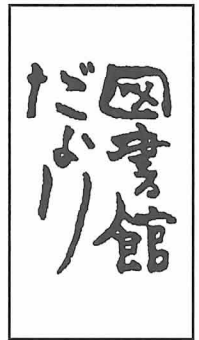 図書館
だより